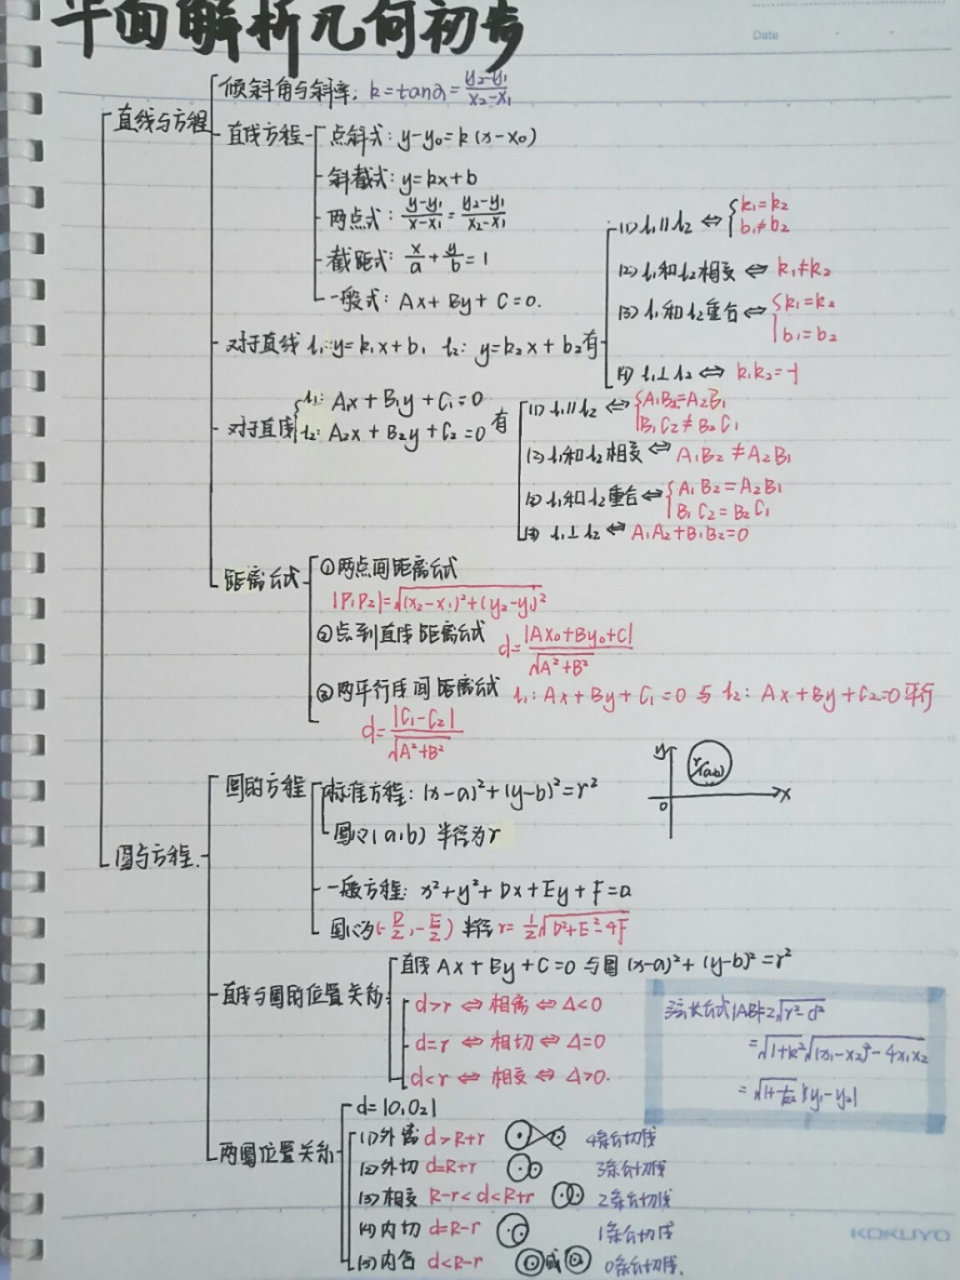 平面解析几何初步
Date
直线与方程
倾斜角与斜率: k=tanα=\frac{y₂-y₁}{x₂-x₁}
直线方程
点斜式: y-y₀=k(x-x₀)
斜截式: y=kx+b
两点式: \frac{y-y₁}{x-x₁}=\frac{y₂-y₁}{x₂-x₁}
截距式: \frac{x}{a}+\frac{y}{b}=1
一般式: Ax+By+C=0.
对于直线 l₁:y=k₁x+b₁ l₂: y=k₂x+b₂有
(1) l₁∥l₂ ⇔ {k₁=k₂
b₁≠b₂
(2) l₁和l₂相交 ⇔ k₁≠k₂
(3) l₁和l₂重合 ⇔ {k₁=k₂
b₁=b₂
(4) l₁⊥l₂ ⇔ k₁k₂=-1
对于直线 {l₁: A₁x+B₁y+C₁=0
l₂: A₂x+B₂y+C₂=0 有
(1) l₁∥l₂ ⇔ {A₁B₂=A₂B₁
B₁C₂≠B₂C₁
(2) l₁和l₂相交 ⇔ A₁B₂≠A₂B₁
(3) l₁和l₂重合 ⇔ {A₁B₂=A₂B₁
B₁C₂=B₂C₁
(4) l₁⊥l₂ ⇔ A₁A₂+B₁B₂=0
距离公式
①两点间距离公式
|P₁P₂|=√((x₂-x₁)²+(y₂-y₁)²)
②点到直线距离公式 d=\frac{|Ax₀+By₀+C|}{√(A²+B²)}
③两平行线间距离公式 l₁: Ax+By+C₁=0 与 l₂: Ax+By+C₂=0平行
d=\frac{|C₁-C₂|}{√(A²+B²)}
圆与方程.
圆的方程
标准方程: (x-a)²+(y-b)²=r²
圆心(a,b) 半径为r
y
r
(a,b)
0
x
一般方程: x²+y²+Dx+Ey+F=0
圆心为(-\frac{D}{2},-\frac{E}{2}) 半径r=\frac{1}{2}√(D²+E²-4F)
直线与圆的位置关系
直线Ax+By+C=0 与圆(x-a)²+(y-b)²=r²
d>r ⇔ 相离 ⇔ Δ<0
d=r ⇔ 相切 ⇔ Δ=0
d<r ⇔ 相交 ⇔ Δ>0.
弦长公式|AB|=2√(r²-d²)
=√(1+k²)√((x₁-x₂)²-4x₁x₂)
=√(1+\frac{1}{k²})|y₁-y₂|
两圆位置关系
d=|O₁O₂|
(1)外离 d>R+r 4条公切线
(2)外切 d=R+r 3条公切线
(3)相交 R-r<d<R+r 2条公切线
(4)内切 d=R-r 1条公切线
(5)内含 d<R-r 或 0条公切线.
KOKUYO